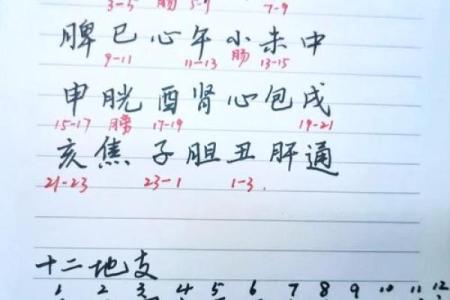 3-5 肠 5-9 7-9
脾巳心午小未中
9-11 11-13 肠 13-15
申胱酉肾心包戌
15-17 膀 17-19 19-21
亥焦子胆丑肝通
21-23 23-1 1-3.
十二地支
1 2 3 4 5 6 7 8 9 10 11 12